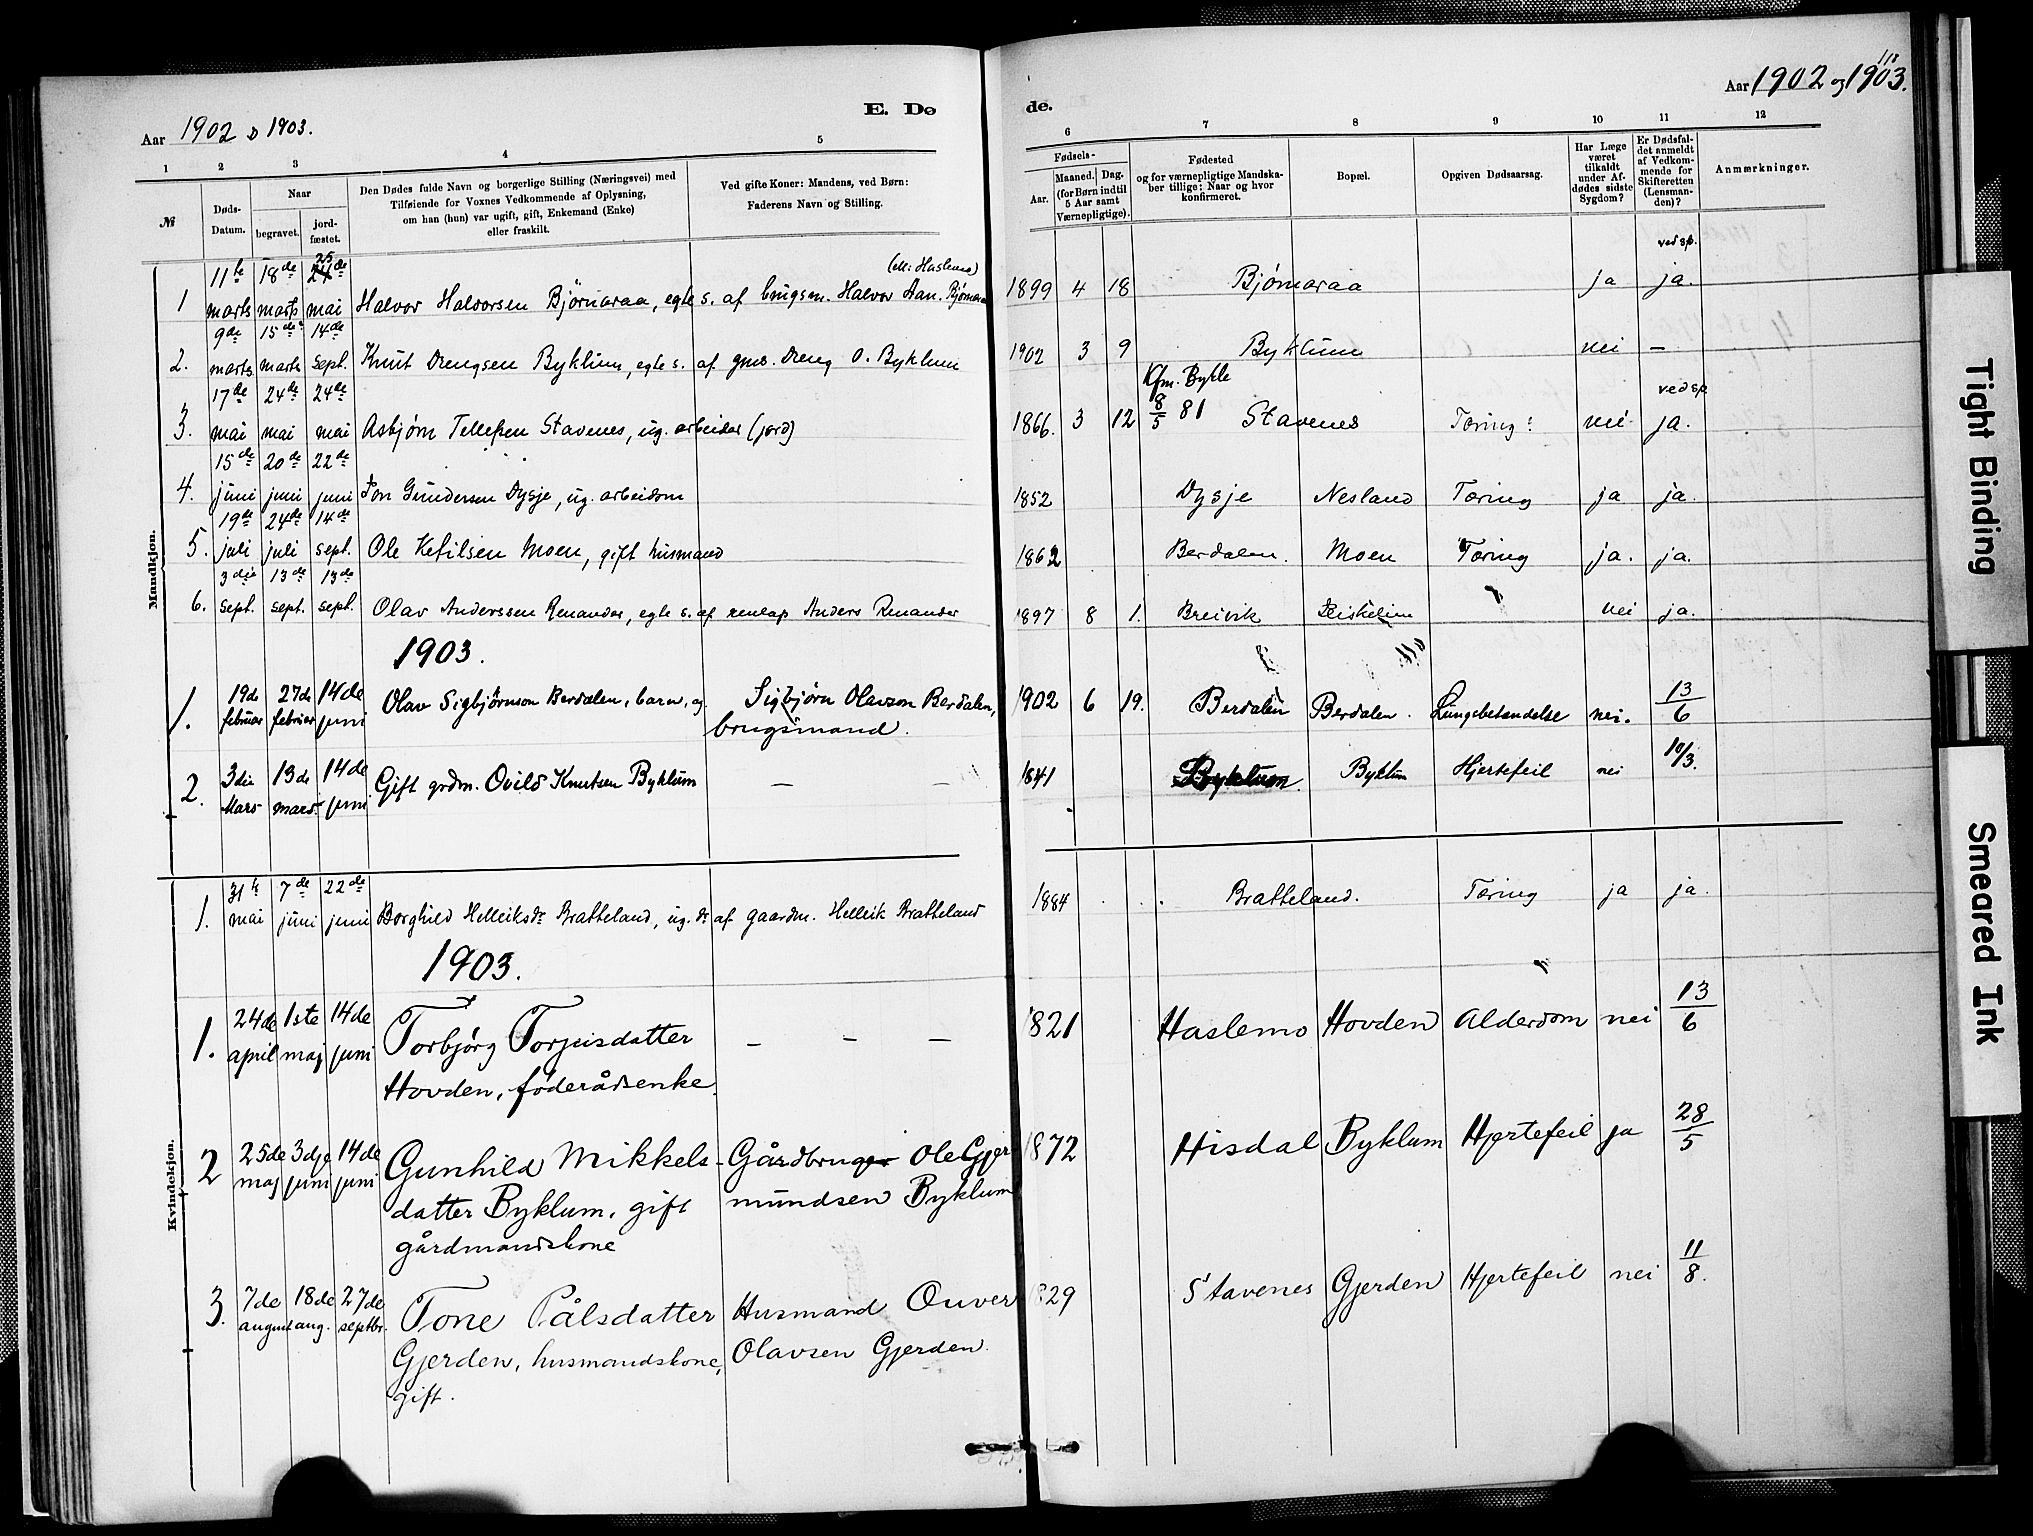 Aar 1902 & 1903.
E. Dø
de.
118
Aar 1902 og 1903.
1 2 3 4 5 6 7 8 9 10 11 12
№
Døds-Datum.
Naar
begravet.
jord-fæstet.
Den Dødes fulde Navn og borgerlige Stilling (Næringsvei) med
Tilføiende for Voxnes Vedkommende af Oplysning,
om han (hun) var ugift, gift, Enkemand (Enke)
eller fraskilt.
Ved gifte Koner: Mandens, ved Børn:
Faderens Navn og Stilling.
Fødsels-
Aar.
Maaned. Dag.
(for Børn indtil
5 Aar samt
Værnepligtige).
Fødested
og for værnepligtige Mandska-
ber tillige: Naar og hvor
konfirmeret.
Bopæl.
Opgiven Dødsaarsag.
Har Læge
været
tilkaldt
under Af-
dødes sidste
Sygdom?
Er Dødsfal-
det anmeldt
af Vedkom-
mende for
Skifteretten
(Lensman-
den)?
Anmærkninger.
Mandkjøn.
1 11te marts 18de marts 24de 25 mai Halvor Halvorsen Bjørnaraa, egte s. af brugsm. Halvor Aan. Bjørnaraa 1899 4 18 Bjørnaraa ja ved sp. ja.
2. 9de marts 15de marts 14de sept. Knut Drengsen Byklum, egte s. af gmd. Dreng O. Byklum 1902 3 9 Byklum nei —
3. 17de mai 24de mai 24de mai Asbjørn Tellefsen Stavenes, ug. arbeider (jord) 1866. 3 12 Kfm. Bykle 8/5 81 Stavenes Tæring nei ved sp ja.
4. 15de juni 20de juni 22de juni Jon Gundersen Dysje, ug. arbeidsm 1852 Dysje Nesland Tæring ja ja.
5. 19de juli 24de juli 14de sept. Ole Ketilsen Moen, gift husmand 1862 Berdalen. Moen Tæring ja. ja.
6. 3die sept. 13de sept. 13de sept. Olav Anderssen Renander, egte s. af renlap Anders Renander 1897 8 1. Breivik nei ja.
1903.
1. 19de februar 27de februar 14de juni Olav Sigbjörnson Berdalen, barn, ug. Sigbjørn Olavson Berdalen, brugsmand. 1902 6 19. Berdalen Berdalen. Lungebetændelse nei. 13/6
2. 3die Mars 13de mars 14de juni Gift grdm. Ovild Knutsen Byklum — 1841 Byklum. Byklum Hjertefeil nei 10/3.
Kvindekjøn.
1. 31te mai 7de juni 22de juni Borghild Helleiksdr Bratteland, ug. dr af gaardm. Helleik Bratteland 1884 Bratteland. Tæring ja ja.
1903.
1. 24de april 1ste maj 14de juni Torbjørg Torjusdatter — — — 1821 Haslemo Hovden Alderdom nei 13/6
Hovden, føderådsenke.
2 25de maj 3dje juni 14de juni Gunhild Mikkels- Gårdbruger Ole Gjer 1872 Hisdal Byklum Hjertefeil ja 28/5
datter Byklum, gift mundsen Byklum
gårdmandskone
3. 7de august 18de aug. 27de septbr. Tone Pålsdatter Husmand Ouver 1829 Stavenes Gjerden Hjertefeil nei 11/8.
Gjerden, husmandskone, Olavsen Gjerden.
gift.
Tight Binding
Smeared Ink